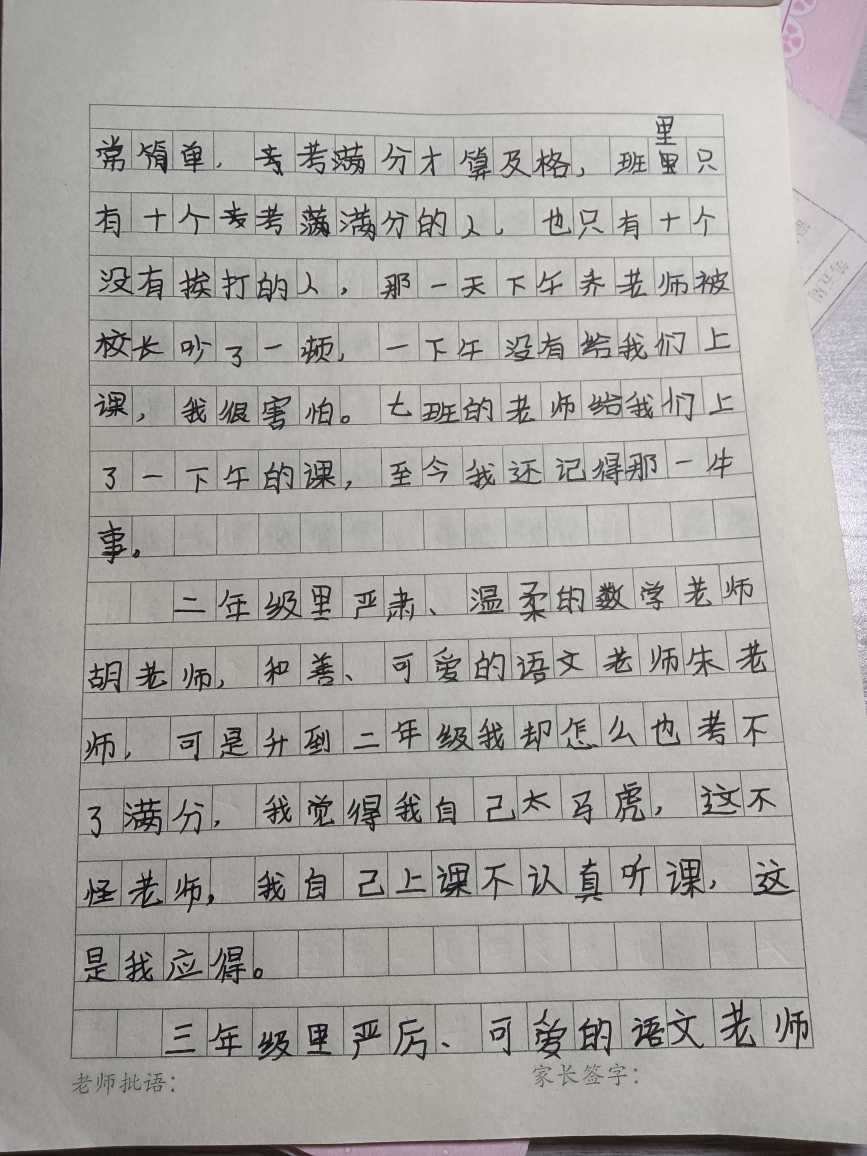 常简单，考满分才算及格，班里只
有十个考满分的人，也只有十个
没有挨打的人，那一天下午乔老师被
校长吵了一顿，一下午没有给我们上
课，我很害怕。七班的老师给我们上
了一下午的课，至今我还记得那一件
事。
二年级里严肃、温柔的数学老师
胡老师，和善、可爱的语文老师朱老
师，可是升到二年级我却怎么也考不
了满分，我觉得我自己太马虎，这不
怪老师，我自己上课不认真听课，这
是我应得。
三年级里严厉、可爱的语文老师
老师批语：
家长签字：